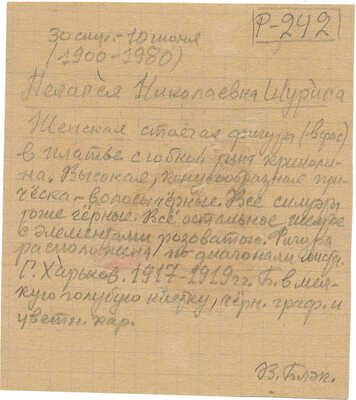 Р-242
30 сент. - 10 июня
(1900-1980)
Пелагея Николаевна Шуриса
Женская стоячая фигура (в фас)
в платье с юбкой типа криноли-
на. Высокая, конусообразная при-
чёска - волосы чёрные. Все
тоже чёрные. Всё остальное
с элементами розоватое. Фигура
расположена по диагонали
Г. Харьков. 1917-1919 гг. Б. в мел-
кую голубую клетку, чёрн. граф. и
цветн. кар.
В. Блэк.